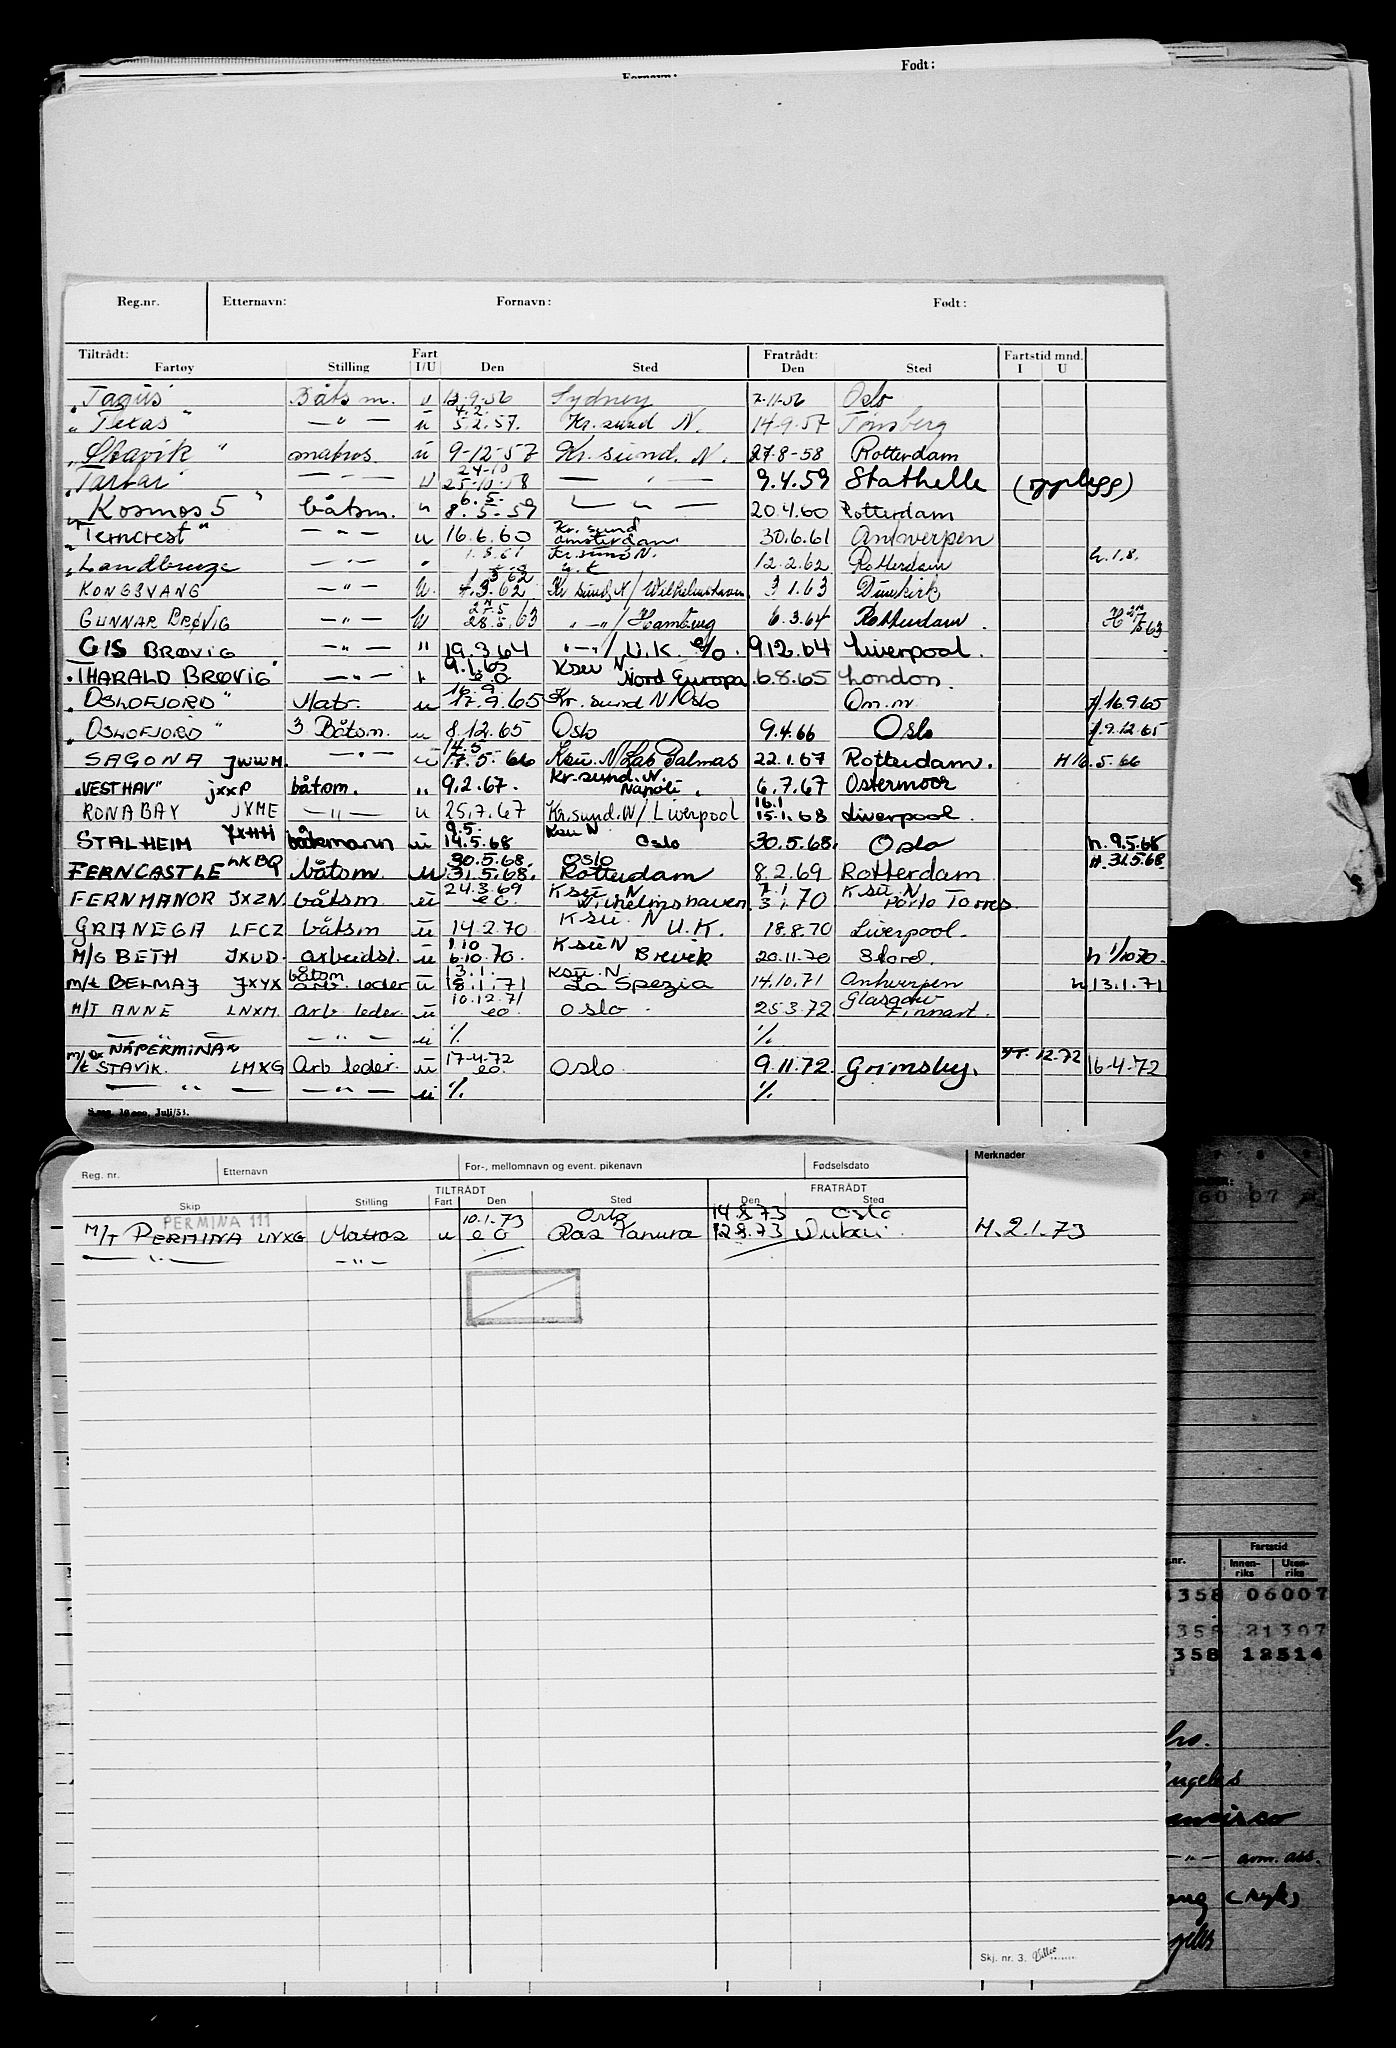 Født:
Fornavn:
Reg.nr. Etternavn: Fornavn: Født:
Tiltrådt: Fart Fratrådt: Fartstid mnd.
Fartøy Stilling I/U Den Sted Den Sted I U
"Tagus" Båtsm. u 13.9.56 Sydney 7-11-56 Oslo
4.2.
"Texas" — " — u 5.2.57. Kr.sund N. 14-9-57 Tønsberg
"Stavik" matros. u 9-12-57 Kr.sund. N. 27-8-58 Rotterdam
24-10
"Tartar" — " — u 25-10-58 — " — 9.4.59 Stathelle (opplegg)
6.5.
"Kosmos 5" båtsm. " 8.5.59 — " — 20.4.60 Rotterdam
Kr.sund
"Terncrest" — " — u 16.6.60 Amsterdam 30.6.61 Antwerpen
Kr.sund N. h.1.8.
"Landbreeze — " — " 12.2.62 Rotterdam
1.3.62
KONGSVANG — " — u. 4.3.62 Kr sund N/Wilhelmshaven 3.1.63 Dunkirk
GUNNAR BRØVIG — " — u 28.5.63 " —"—/Hamburg 6.3.64 Rotterdam. H 27/5 63
GIS BRØVIG — " — " 19.3.64 "—"—/U.K. e/o. 9.12.64 Liverpool.
9.1.65 Ksu N
"HARALD BRØVIG" — " — e.o Nord Europa 6.8.65 London.
16.9.
"OSLOFJORD" Matr. u 17.9.65 Kr.sund N/Oslo Om.m H 16.9.65
"OSLOFJORD" 3 Båtsm. u 8.12.65 Oslo 9.4.66 Oslo H.9.12.65
14.5.
SAGONA JWWM. — " — u 17.5.66 Ksu. N/Las Palmas 22.1.67 Rotterdam. H 16.5.66
Kr.sund. N.
"VESTHAV" JXXP båtsm. " 9.2.67. Napoli. 6.7.67 Ostermoor
16.1
RONA BAY JXME — " — u 25.7.67 Kr.sund.N/Liverpool 15.1.68 Liverpool.
9.5. Ksu N
STALHEIM JXHH båtsmann u 14.5.68 Oslo 30.5.68. Oslo h.9.5.68
30.5.68. Oslo H.31.5.68.
FERNCASTLE LKBQ båtsm. u 31.5.68. Rotterdam 8.2.69 Rotterdam
24.3.69 Ksu. N 7.1 Ksu. N
FERNMANOR JXZN. båtsm u e.o. Wilhelmshaven. 3.1.70 Porto Torres
Ksu. N
GRANEGA LFCZ båtsm u 14.2.70 U.K. 18.8.70 Liverpool.
1.10 Ksu N
M/G BETH JXUD. arbeidsl. u 6.10.70. Brevik 20.11.70 Stord. h 1/10 70.
båtsm 13.1. Ksu. N.
M/t BELMAJ JXYX arb. leder u 18.1.71 La Spezia 14.10.71 Antwerpen h 13.1.71
10.12.71 Glasgow
M/T ANNE LNXM. arb leder. u e.o. Oslo. 25.3.72 Finnart.
— " — — " — u ·/. ·/.
NÅ PERMINA 17.4.72
M/t STAVIK. LMXG Arb leder. u e.o. Oslo. 9.11.72. Grimsby. 12.72 16-4-72
— " — — " — u ·/. ·/.
S.reg. 10 000, Juli/53.
Reg. nr. Etternavn For-, mellomnavn og event. pikenavn Fødselsdato Merknader
TILTRÅDT FRATRÅDT
Skip Stilling Fart Den Sted Den Sted
PERMINA 111 10.1.73 Oslo 14.8.73 Oslo
M/T PERMINA LNXG Matros u e o Ras Tanura 12.8.73 Dubai. H.2.1.73
— " — — " —
Skj. nr. 3.
60 07
nr. Fartstid
Innen-riks Uten-riks
358 06007
355 21307
358 12514
—"— avm. ass.